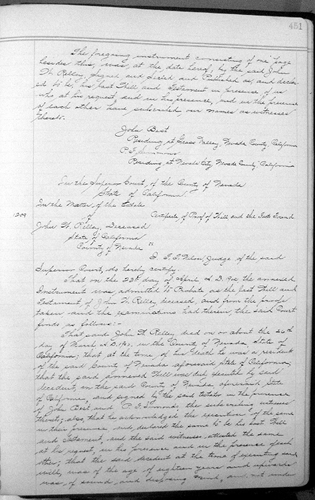 451
The foregoing instrument consisting of one page
besides this, was, at the date hereof, by the said John
W. Kelley, signed and sealed and Published as, and declar
ed to be, his last Will and Testament in presence of us
who at his request and in his presence, and in the presence
of each other have subscribed our names as witnesses
thereto.
John Best
Residing at Grass Valley, Nevada County, California
Residing at Nevada City, Nevada County, California
In the Superior Court, of the County of Nevada
State of California
In the Matter of the Estate
of
Certificate of Proof of Will and the Facts Found
John W. Kelley, Deceased
State of California
County of Nevada
Judge of the said
Superior Court, do hereby certify:
That on the day of April A.D. the annexed
Instrument was admitted to Probate as the last Will and
Testament of John W. Kelley deceased, and from the proofs
taken and the examinations had therein, the said Court
finds as follows:-
That said John W. Kelley died on or about the
day of March A.D. in the County of Nevada, State of
California; that at the time of his death he was a resident
of the said County of Nevada aforesaid State of California;
that the said annexed Will was duly executed by said
decedent, in the said County of Nevada aforesaid State
of California, and signed by the said testator in the presence
of John Best and the subscribing witnesses
thereto; also that he acknowledged the execution of the same
in their presence and declared the same to be his last Will
and Testament, and the said witnesses attested the same
at his request, in his presence and in the presence of each
other; that the said decedent at the time of executing said
will, was of the age of eighteen years and upwards
was of sound and disposing mind, and not under